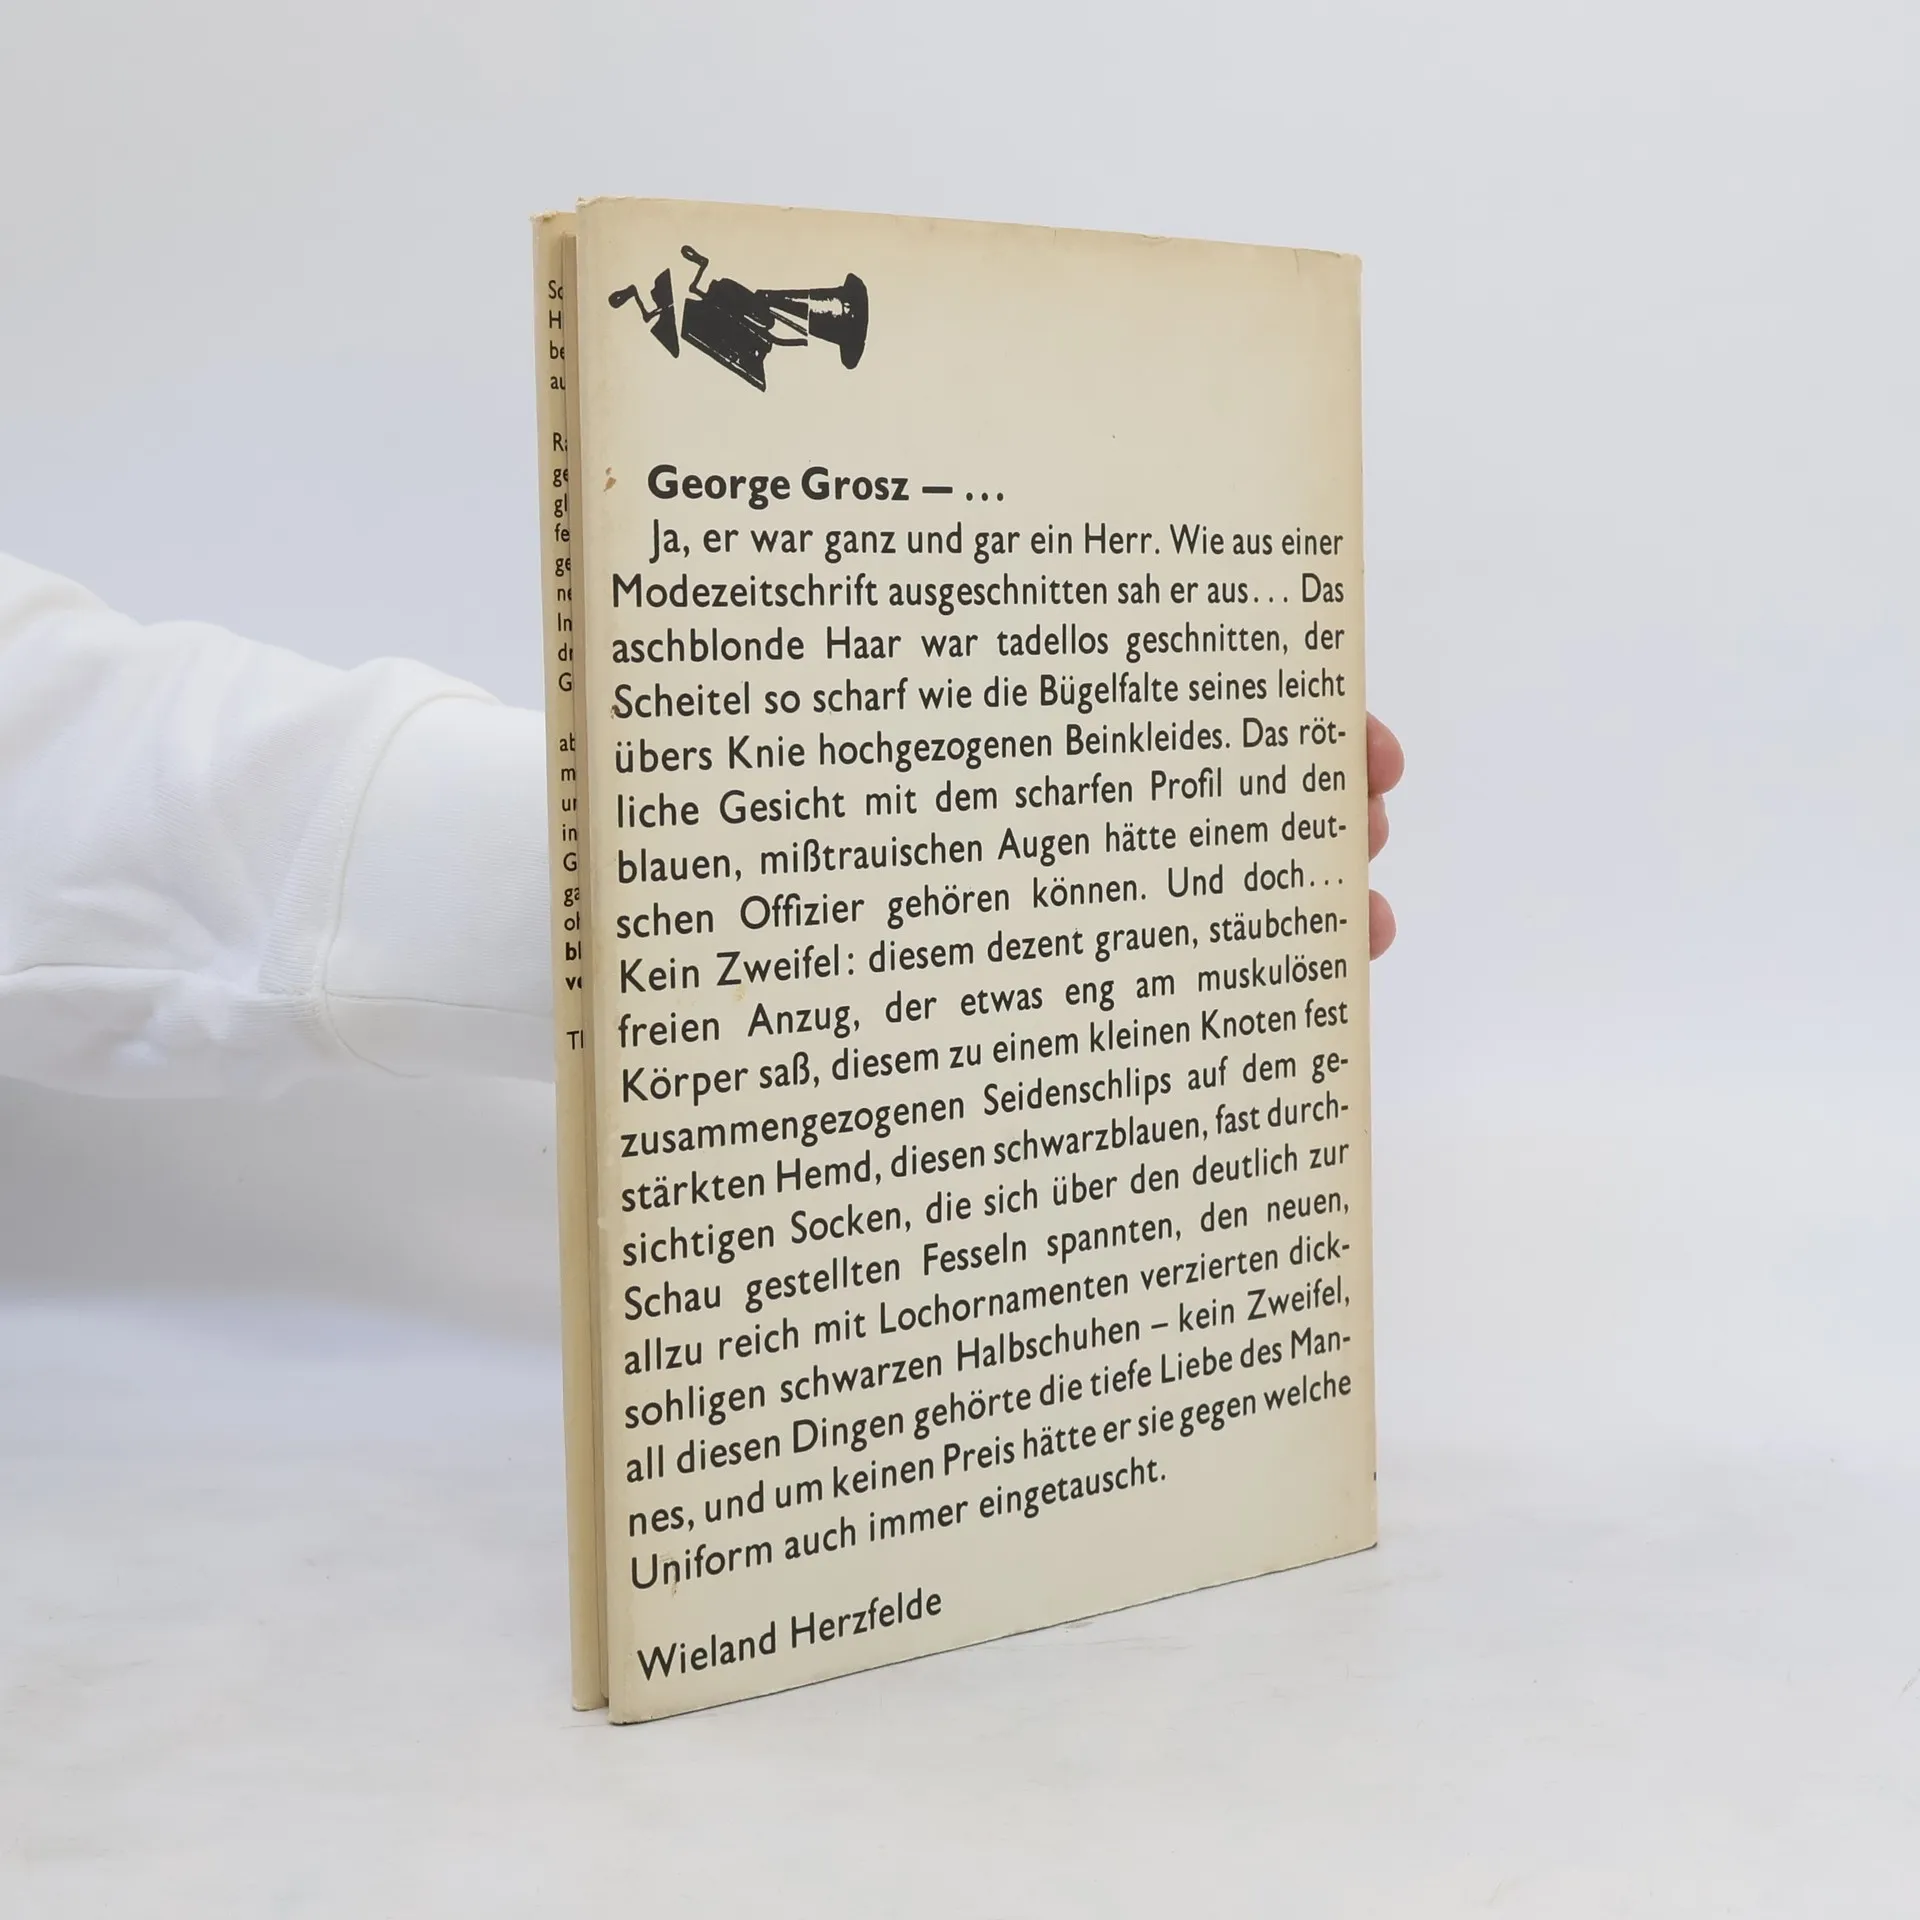 George Grosz — ...
Ja, er war ganz und gar ein Herr. Wie aus einer
Modezeitschrift ausgeschnitten sah er aus... Das
aschblonde Haar war tadellos geschnitten, der
Scheitel so scharf wie die Bügelfalte seines leicht
übers Knie hochgezogenen Beinkleides. Das röt-
liche Gesicht mit dem scharfen Profil und den
blauen, mißtrauischen Augen hätte einem deut-
schen Offizier gehören können. Und doch...
Kein Zweifel: diesem dezent grauen, stäubchen-
freien Anzug, der etwas eng am muskulösen
Körper saß, diesem zu einem kleinen Knoten fest
zusammengezogenen Seidenschlips auf dem ge-
stärkten Hemd, diesen schwarzblauen, fast durch-
sichtigen Socken, die sich über den deutlich zur
Schau gestellten Fesseln spannten, den neuen,
allzu reich mit Lochornamenten verzierten dick-
sohligen schwarzen Halbschuhen – kein Zweifel,
all diesen Dingen gehörte die tiefe Liebe des Man-
nes, und um keinen Preis hätte er sie gegen welche
Uniform auch immer eingetauscht.
Wieland Herzfelde